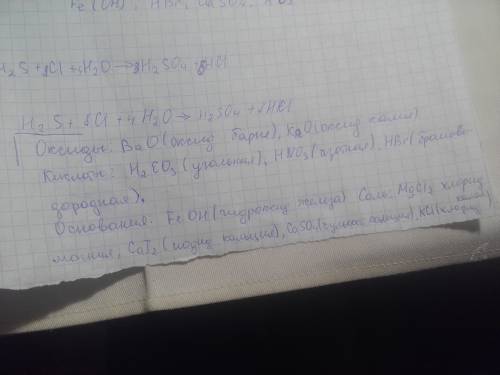 Fe(OH), HBr, CaSO₄, K₂O
H₂S + 8Cl + 4H₂O → H₂SO₄ + 8HCl
H₂S + 8Cl + 4H₂O → H₂SO₄ + 8HCl
Оксиды: BaO (оксид бария), K₂O (оксид калия)
Кислоты: H₂CO₃ (угольная), HNO₃ (азотная), HBr (бромово-
дородная).
Основания: FeOH (гидроксид железа) Соль: MgCl₂ хлорид
магния, CaI₂ (иодид кальция), CaSO₄ (кальция), KCl (хлорид
калия)